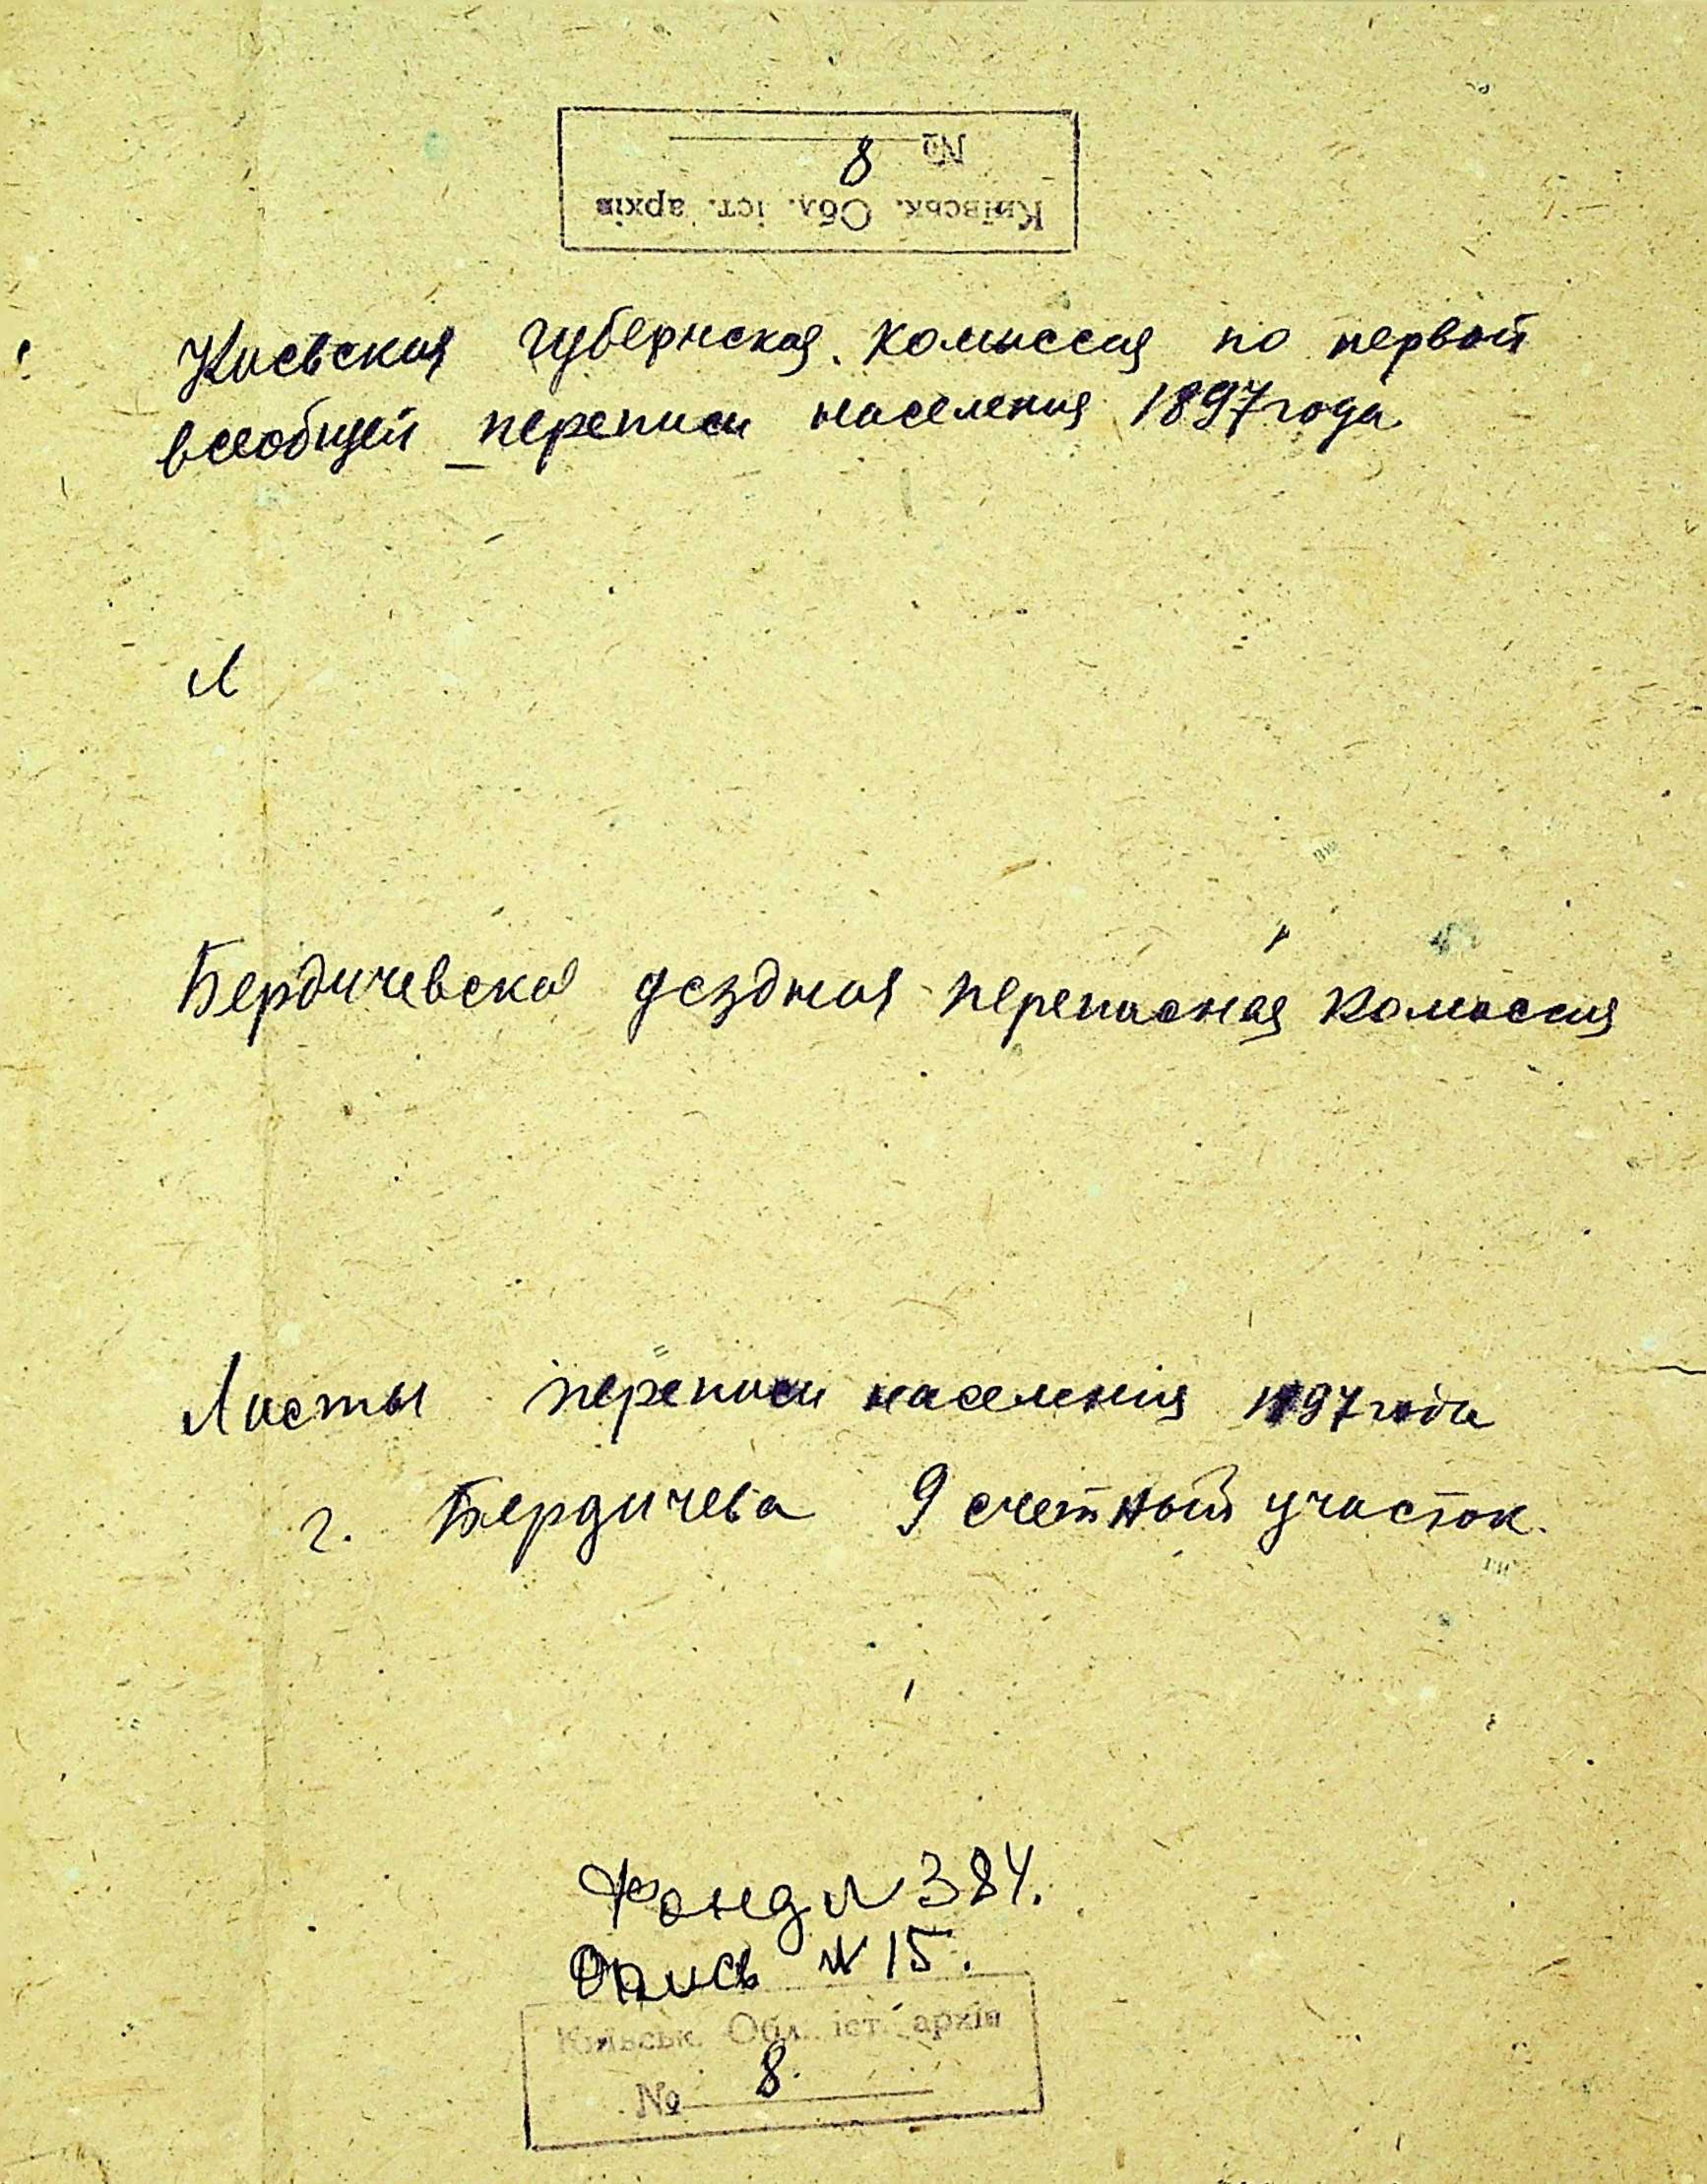 Київськ. Обл. іст. архів
№ 8
Киевская губернская комиссия по первой
всеобщей переписи населения 1897 года.
Л
Бердичевская уездная переписная комиссия
Листы переписи населения 1897 года
г. Бердичева 9 счетный участок.
Фонд № 384.
Опись № 15.
Київськ. Обл. іст. архів
№ 8.